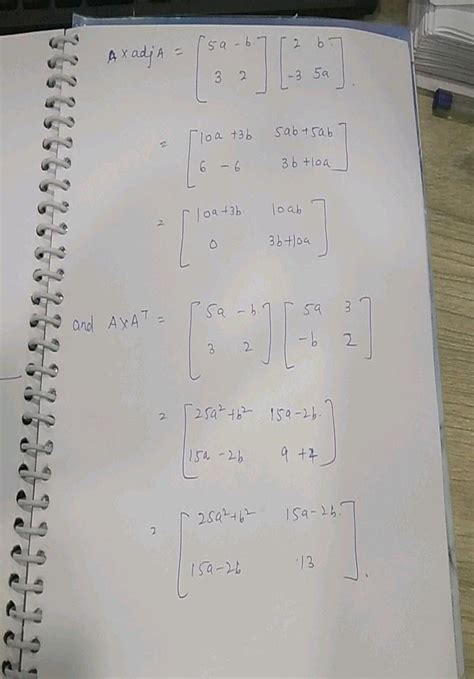 A × adj A = [5a -b; 3 2] [2 b; -3 5a].
= [10a + 3b 5ab + 5ab; 6 - 6 3b + 10a]
= [10a + 3b 10ab; 0 3b + 10a]
and A × A^T = [5a -b; 3 2] [5a 3; -b 2]
= [25a² + b² 15a - 2b; 15a - 2b 9 + 4]
= [25a² + b² 15a - 2b; 15a - 2b 13].